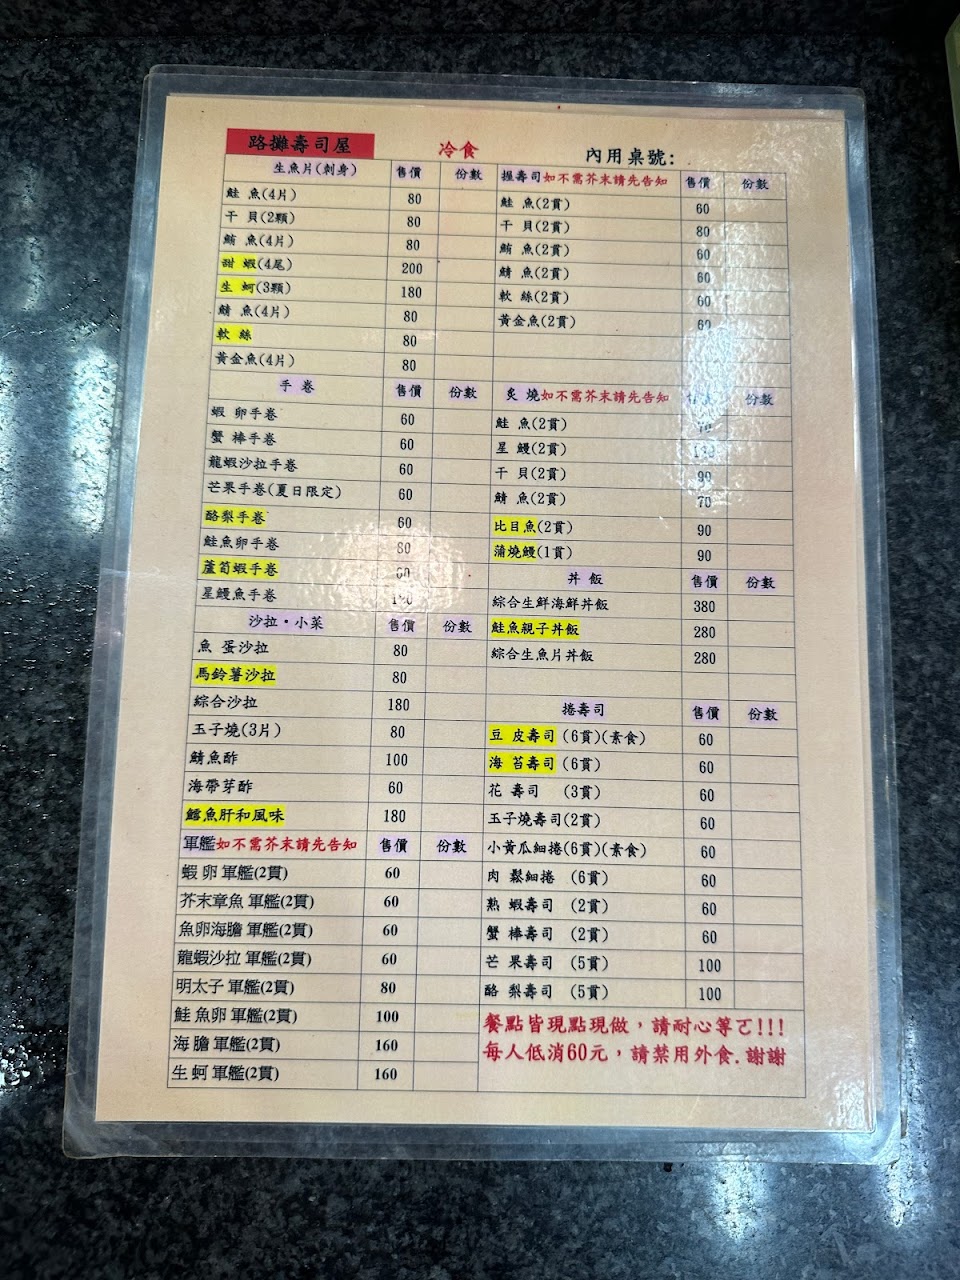 路攤壽司屋 冷食 內用桌號:
生魚片(刺身) 售價 份數
鮭 魚(4片) 80
干 貝(2顆) 80
鮪 魚(4片) 80
甜 蝦(4尾) 200
生 蚵(3顆) 180
鯖 魚(4片) 80
軟 絲 80
黃金魚(4片) 80
手 卷 售價 份數
蝦 卵手卷 60
蟹 棒手卷 60
龍蝦沙拉手卷 60
芒果手卷(夏日限定) 60
酪梨手卷 60
鮭魚卵手卷 80
蘆筍蝦手卷 60
星鰻魚手卷
沙拉・小菜 售價 份數
魚 蛋沙拉 80
馬鈴薯沙拉 80
綜合沙拉 180
玉子燒(3片) 80
鯖魚酢 100
海帶芽酢 60
鱈魚肝和風味 180
軍艦如不需芥末請先告知 售價 份數
蝦 卵 軍艦(2貫) 60
芥末章魚 軍艦(2貫) 60
魚卵海膽 軍艦(2貫) 60
龍蝦沙拉 軍艦(2貫) 60
明太子 軍艦(2貫) 80
鮭 魚卵 軍艦(2貫) 100
海 膽 軍艦(2貫) 160
生 蚵 軍艦(2貫) 160
握壽司如不需芥末請先告知 售價 份數
鮭 魚(2貫) 60
干 貝(2貫) 80
鮪 魚(2貫) 60
鯖 魚(2貫) 60
軟 絲(2貫) 60
黃金魚(2貫) 60
炙 燒如不需芥末請先告知 份數
鮭 魚(2貫) 70
星 鰻(2貫)
干 貝(2貫) 90
鯖 魚(2貫) 70
比目魚(2貫) 90
蒲燒鰻(1貫) 90
丼 飯 售價 份數
綜合生鮮海鮮丼飯 380
鮭魚親子丼飯 280
綜合生魚片丼飯 280
捲壽司 售價 份數
豆 皮壽司 (6貫)(素食) 60
海 苔壽司 (6貫) 60
花 壽司 (3貫) 60
玉子燒壽司(2貫) 60
小黃瓜細捲(6貫)(素食) 60
肉 鬆細捲 (6貫) 60
熟 蝦壽司 (2貫) 60
蟹 棒壽司 (2貫) 60
芒 果壽司 (5貫) 100
酪 梨壽司 (5貫) 100
餐點皆現點現做，請耐心等ㄛ!!!
每人低消60元，請禁用外食.謝謝